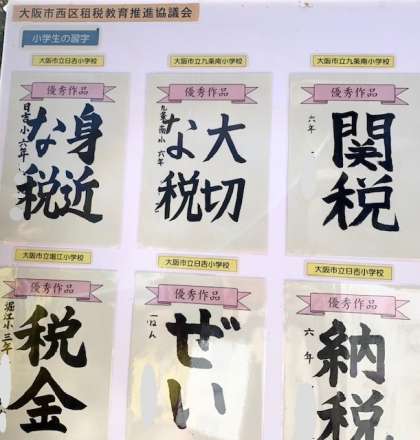 大阪市西区租税教育推進協議会
小学生の習字
大阪市立日吉小学校
優秀作品
身近
な税
日吉小 六年
大阪市立九条南小学校
優秀作品
大切
な税
九条南小 六年
大阪市立九条南小学校
優秀作品
関税
六年
大阪市立堀江小学校
優秀作品
税金
堀江小 三年
大阪市立日吉小学校
優秀作品
ぜい
一ねん
大阪市立日吉小学校
優秀作品
納税
六年